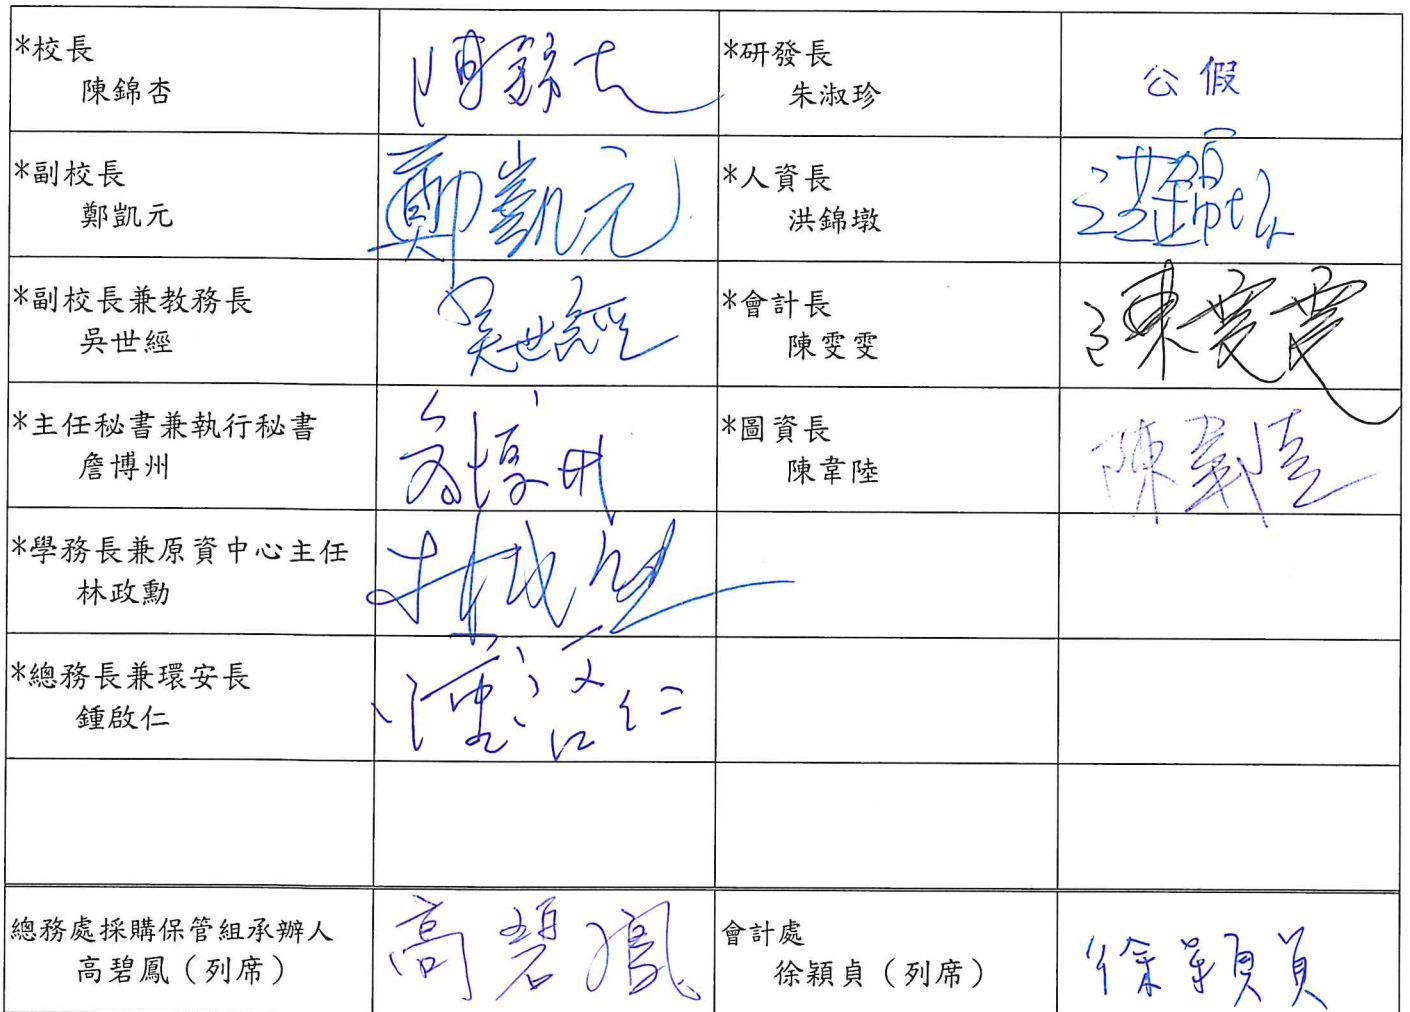 *校長
陳錦杏
陳錦杏
*研發長
朱淑珍
公假
*副校長
鄭凱元
鄭凱元
*人資長
洪錦墩
洪錦墩
*副校長兼教務長
吳世經
吳世經
*會計長
陳雯雯
陳雯雯
*主任秘書兼執行秘書
詹博州
*圖資長
陳韋陸
陳韋陸
*學務長兼原資中心主任
林政勳
*總務長兼環安長
鍾啟仁
鍾啟仁
總務處採購保管組承辦人
高碧鳳（列席）
高碧鳳
會計處
徐穎貞（列席）
徐穎貞